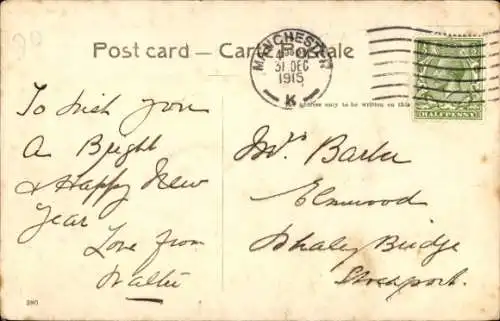 Post card — Carte Postale
MANCHESTER
31 DEC
1915
K
Address only to be written on this
HALFPENNY
To Wish you
A Bright
& Happy New
Year
Love from
Walter
Mrs Barber
Elmwood
Whaley Bridge
Stockport.